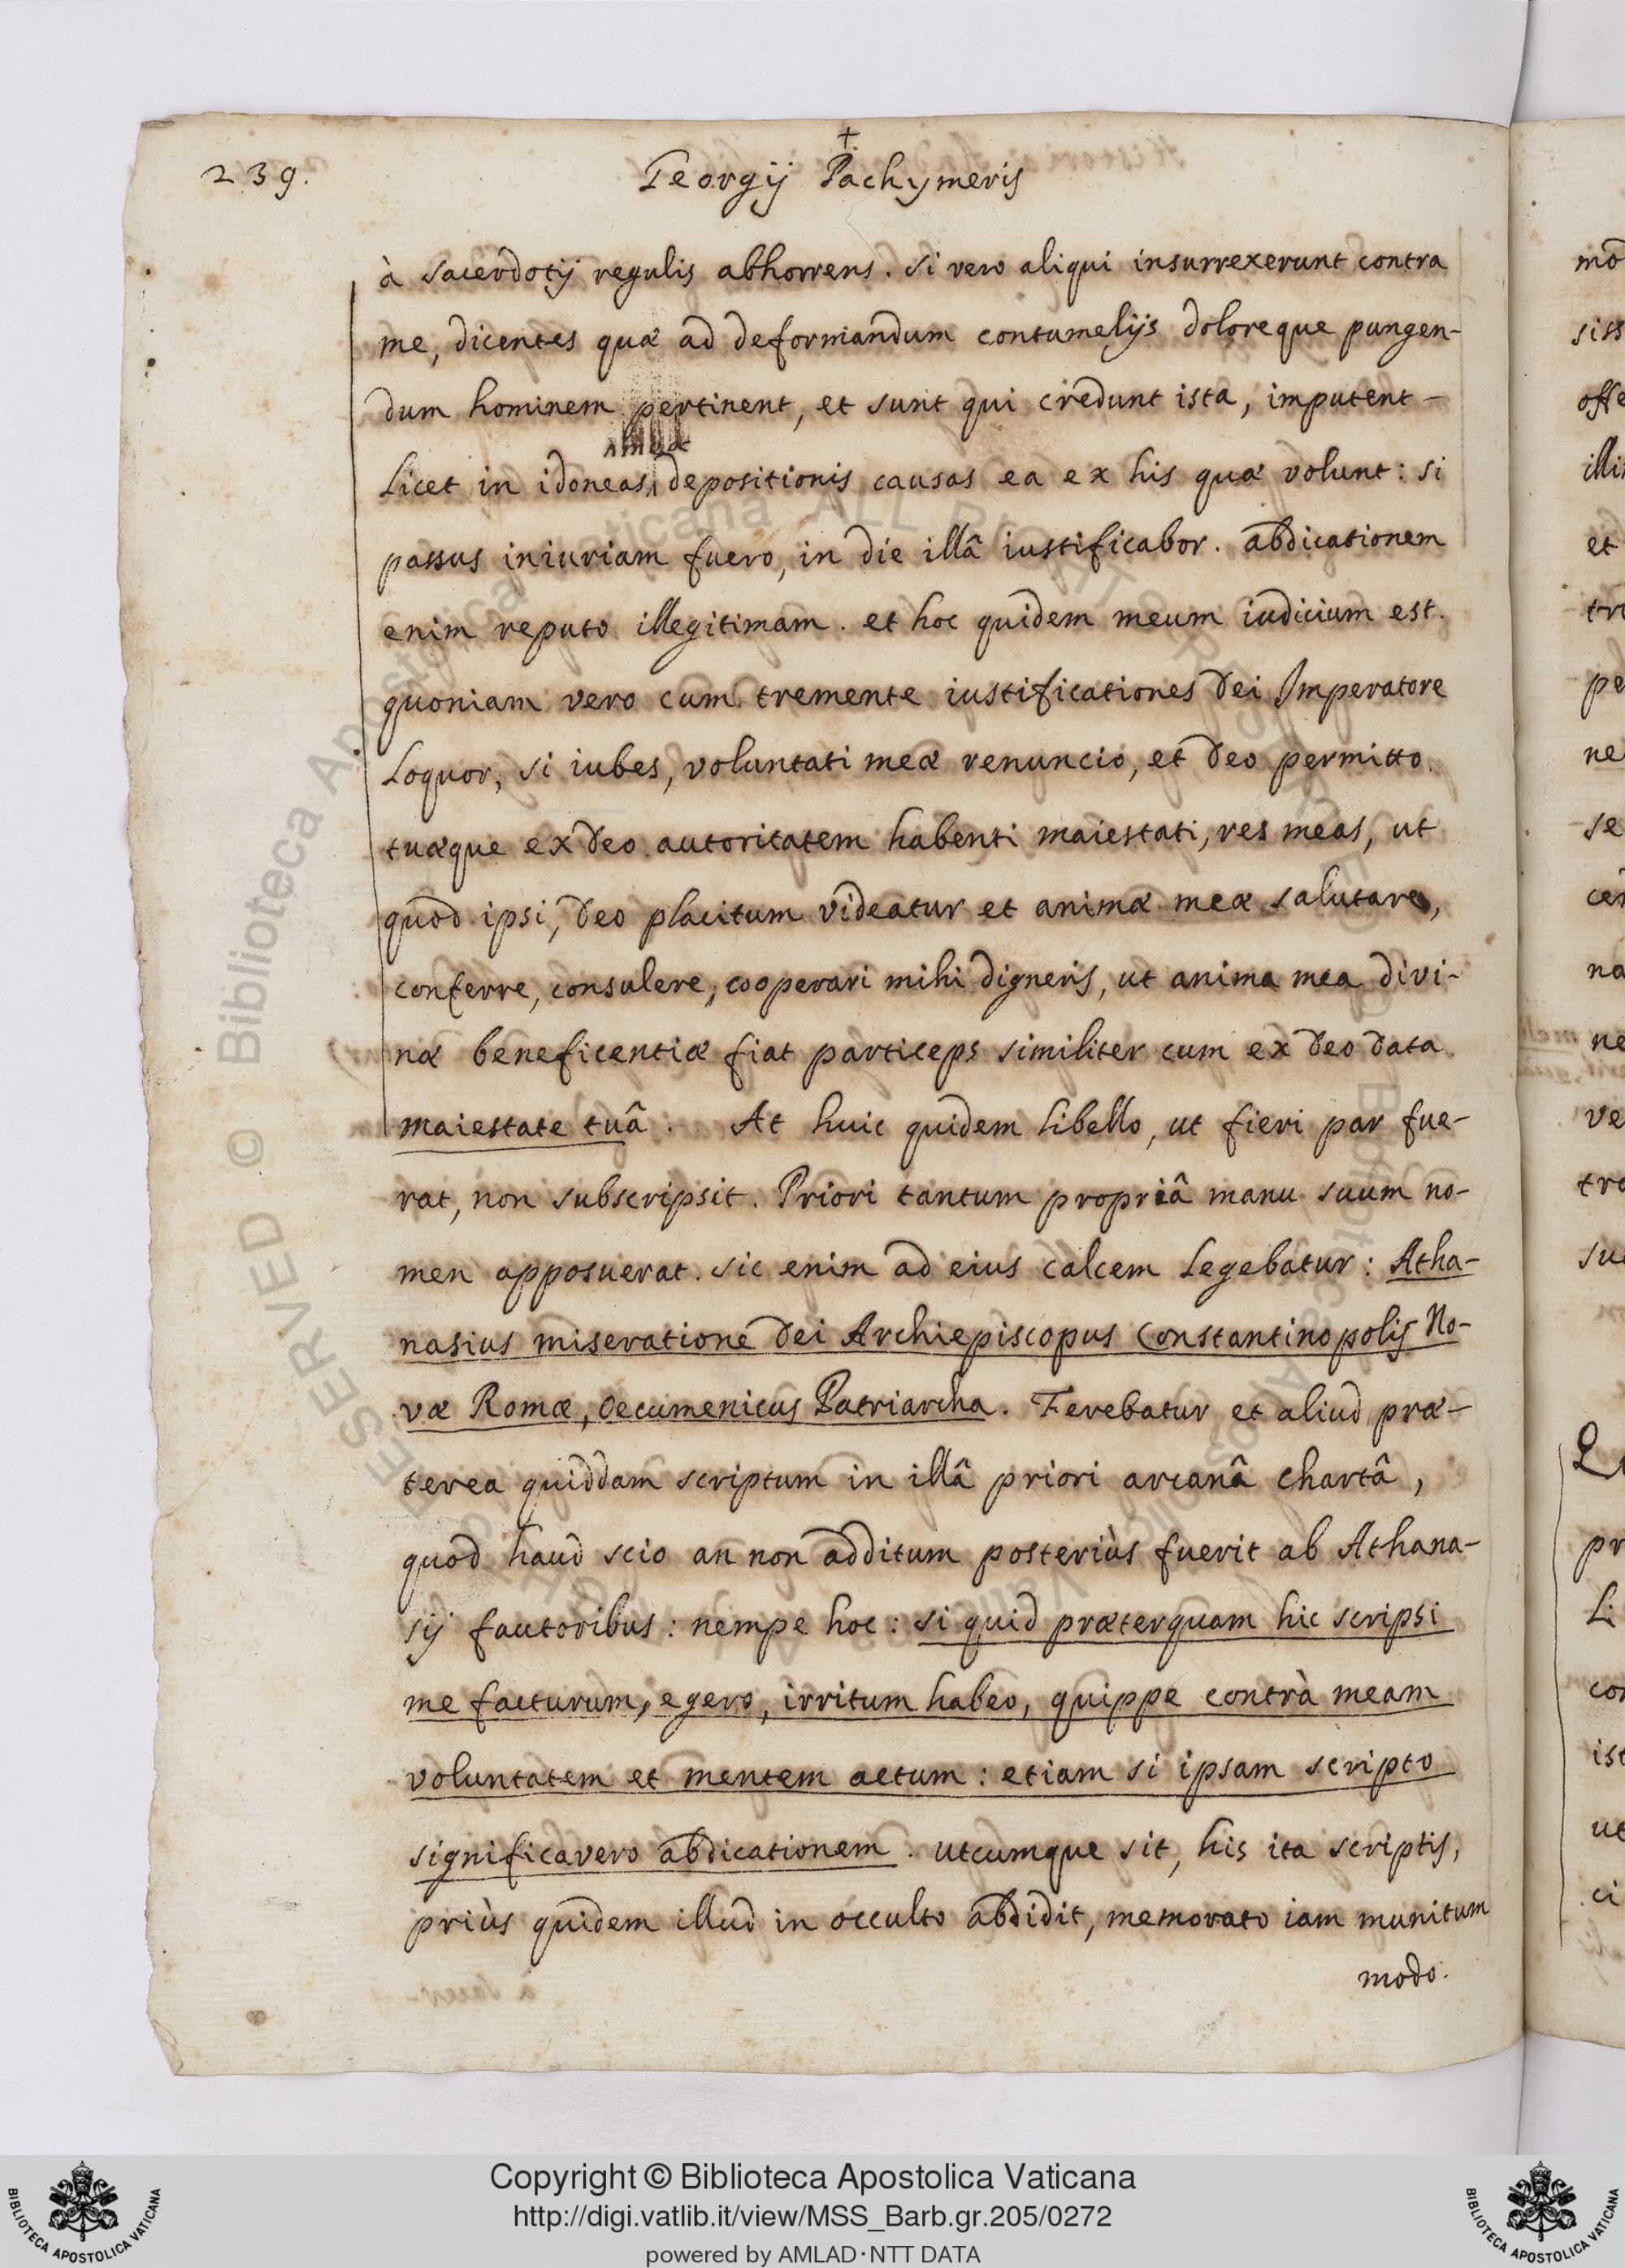 239.
+
Georgij Pachymeris
à sacerdotij regulis abhorrens. si vero aliqui insurrexerunt contra
me, dicentes quæ ad deformandum contumelijs doloreque pungen-
dum hominem pertinent, et sunt qui credunt ista, imputent
meæ
licet in idoneas depositionis causas ea ex his quæ volunt: si
passus iniuriam fuero, in die illâ iustificabor. abdicationem
enim reputo illegitimam. et hoc quidem meum iudicium est.
quoniam vero cum tremente iustificationes Dei Imperatore
loquor, si iubes, voluntati meæ renuncio, et Deo permitto.
tuæque ex Deo autoritatem habenti maiestati, res meas, ut
quod ipsi, Deo placitum videatur et animæ meæ salutare,
conferre, consulere, cooperari mihi digneris, ut anima mea divi-
næ beneficentiæ fiat particeps similiter cum ex Deo data
maiestate tuâ. At huic quidem libello, ut fieri par fue-
rat, non subscripsit. Priori tantum propriâ manu suum no-
men apposuerat. sic enim ad eius calcem legebatur: Atha-
nasius miseratione Dei Archiepiscopus Constantinopolis No-
væ Romæ, Oecumenicus Patriarcha. Ferebatur et aliud præ-
terea quiddam scriptum in illâ priori arcanâ chartâ,
quod haud scio an non additum posteriùs fuerit ab Athana-
sij fautoribus: nempe hoc: si quid præterquam hic scripsi
me facturum, egero, irritum habeo, quippe contrà meam
voluntatem et mentem actum: etiam si ipsam scripto
significavero abdicationem. utcumque sit, his ita scriptis,
priùs quidem illud in occulto abdidit, memorato iam munitum
modo.
Copyright © Biblioteca Apostolica Vaticana
http://digi.vatlib.it/view/MSS_Barb.gr.205/0272
powered by AMLAD·NTT DATA
BIBLIOTECA APOSTOLICA VATICANA
BIBLIOTECA APOSTOLICA VATICANA